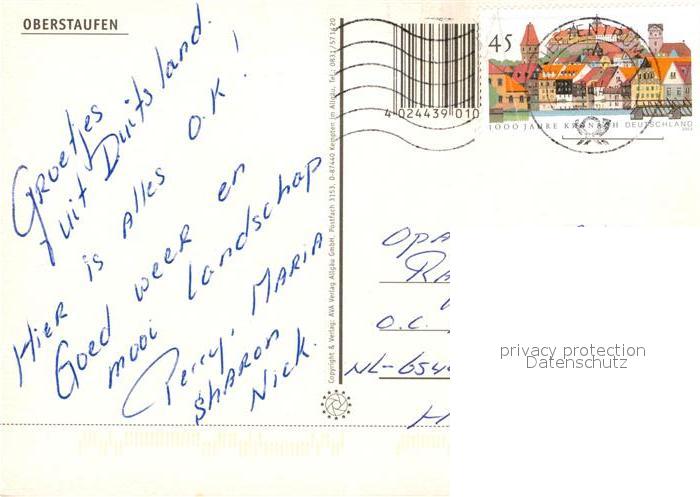 OBERSTAUFEN
GROETJES
uit Duitsland.
HIER is alles O.K!
Goed weer en
mooi landschap
Perry, MARIA
SHARON
Nick.
Copyright & Verlag: AVA Verlag Allgäu GmbH, Postfach 3153, D-87440 Kempten im Allgäu, Tel.: 0831/571620
4 024439 010
45
1000 JAHRE KRONACH DEUTSCHLAND
BRIEFZENTRUM
OPA
RA
O.C.
NL-654
H
privacy protection
Datenschutz